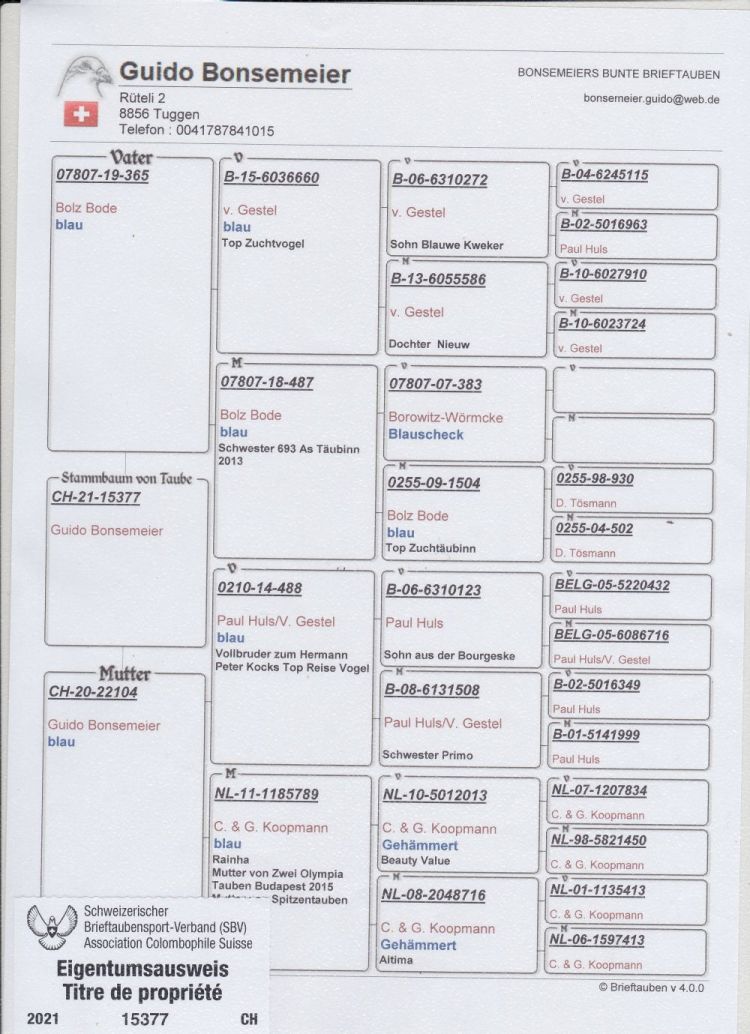 Guido Bonsemeier
Rüteli 2
8856 Tuggen
Telefon : 0041787841015
BONSEMEIERS BUNTE BRIEFTAUBEN
bonsemeier.guido@web.de
Vater
07807-19-365
Bolz Bode
blau
Stammbaum von Taube
CH-21-15377
Guido Bonsemeier
Mutter
CH-20-22104
Guido Bonsemeier
blau
V
B-15-6036660
v. Gestel
blau
Top Zuchtvogel
M
07807-18-487
Bolz Bode
blau
Schwester 693 As Täubinn
2013
V
0210-14-488
Paul Huls/V. Gestel
blau
Vollbruder zum Hermann
Peter Kocks Top Reise Vogel
M
NL-11-1185789
C. & G. Koopmann
blau
Rainha
Mutter von Zwei Olympia
Tauben Budapest 2015
Spitzentauben
V
B-06-6310272
v. Gestel
Sohn Blauwe Kweker
M
B-13-6055586
v. Gestel
Dochter Nieuw
V
07807-07-383
Borowitz-Wörmcke
Blauscheck
M
0255-09-1504
Bolz Bode
blau
Top Zuchtäubinn
V
B-06-6310123
Paul Huls
Sohn aus der Bourgeske
M
B-08-6131508
Paul Huls/V. Gestel
Schwester Primo
V
NL-10-5012013
C. & G. Koopmann
Gehämmert
Beauty Value
M
NL-08-2048716
C. & G. Koopmann
Gehämmert
Altima
V
B-04-6245115
v. Gestel
M
B-02-5016963
Paul Huls
V
B-10-6027910
v. Gestel
M
B-10-6023724
v. Gestel
V
M
V
0255-98-930
D. Tösmann
M
0255-04-502
D. Tösmann
V
BELG-05-5220432
Paul Huls
M
BELG-05-6086716
Paul Huls/V. Gestel
V
B-02-5016349
Paul Huls
M
B-01-5141999
Paul Huls
V
NL-07-1207834
C. & G. Koopmann
M
NL-98-5821450
C. & G. Koopmann
V
NL-01-1135413
C. & G. Koopmann
M
NL-06-1597413
C. & G. Koopmann
© Brieftauben v 4.0.0
Schweizerischer
Brieftaubensport-Verband (SBV)
Association Colombophile Suisse
Eigentumsausweis
Titre de propriété
2021 15377 CH